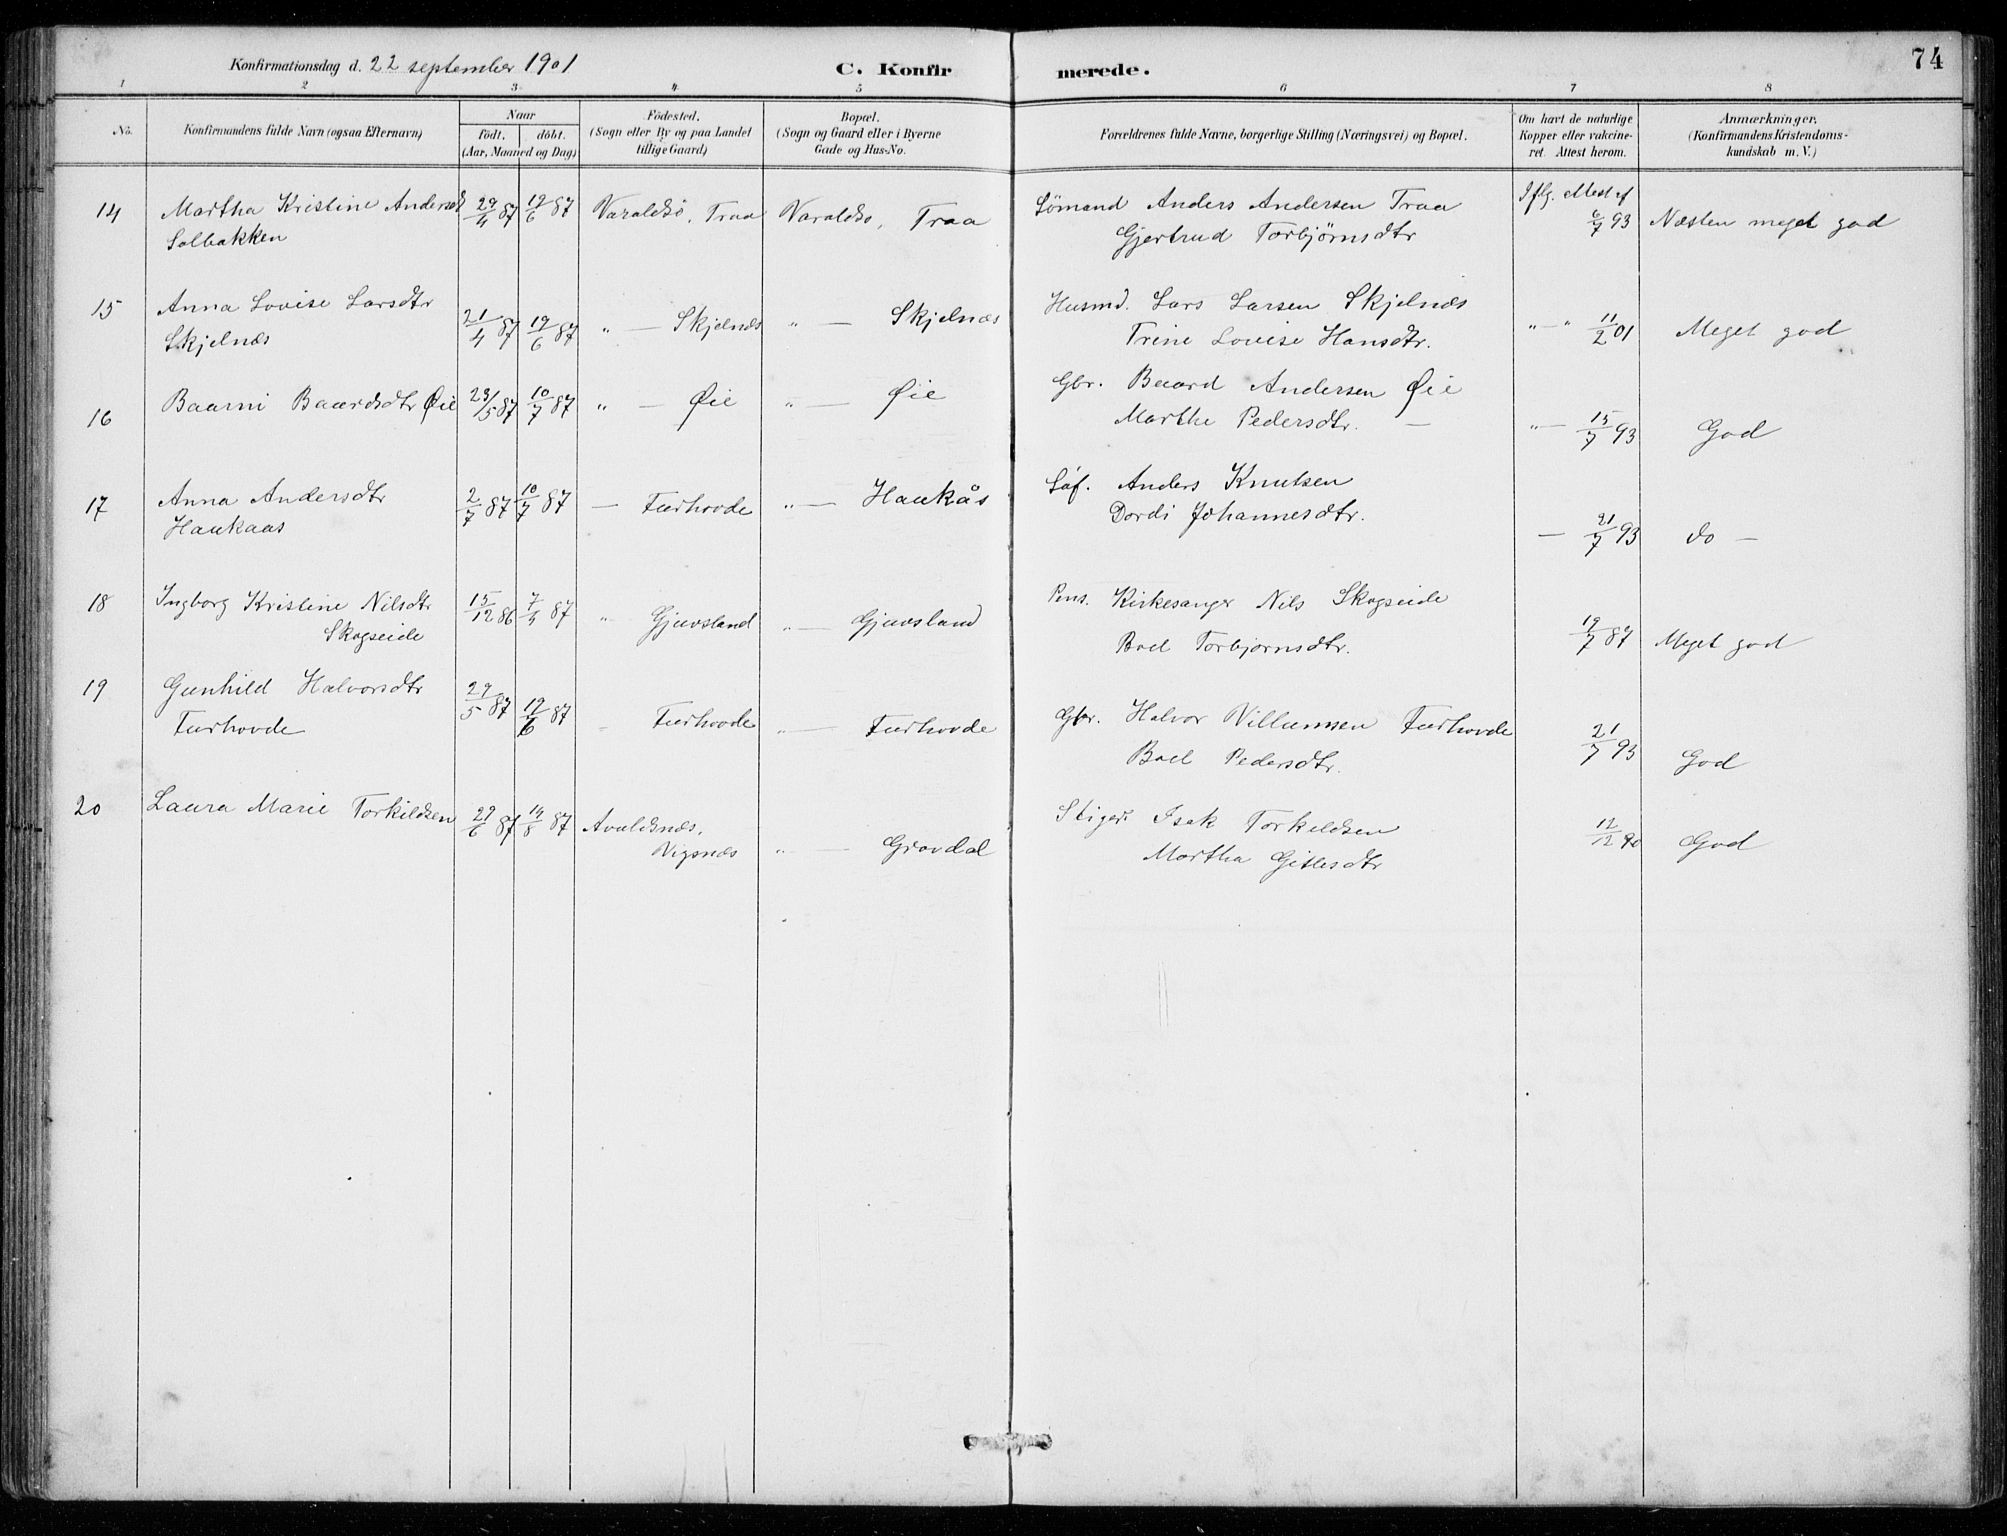 74
Konfirmationsdag d. 22 september 1901
C. Konfirmerede.
1 2 3 4 5 6 7 8
No. Konfirmandens fulde Navn (ogsaa Efternavn) Naar födt. döbt. (Aar, Maaned og Dag) Födested. (Sogn eller By og paa Landet tillige Gaard) Bopæl. (Sogn og Gaard eller i Byerne Gade og Hus-No. Forældrenes fulde Navne, borgerlige Stilling (Næringsvei) og Bopæl. Om havt de naturlige Kopper eller vakcineret. Attest herom. Anmærkninger. (Konfirmandens Kristendomskundskab m. V.)
14 Martha Kristine Andersd 29/4 87 19/6 87 Varaldsö, Traa Varaldsö, Traa Sömand Anders Andersen Traa Iflg. attest af 6/7 93 Næsten meget god
Solbakken Gjertrud Torbjørnsdtr
15 Anna Lovise Larsdtr 21/4 87 19/6 87 " — Skjelnæs " — Skjelnæs Husmd. Lars Larsen Skjelnæs "—" 11/2 01 Meget god
Skjelnæs Trine Lovise Hansdtr.
16 Baarni Baardsdtr Øie 23/5 87 10/7 87 " — Øie " — Øie Gbr. Baard Andersen Øie "— 15/7 93 God
Marthe Pedersdtr. —
17 Anna Andersdtr 2/7 87 10/7 87 — Furhovde " — Haukås Söf. Anders Knutsen — 21/7 93 do —
Haukaas Dordi Johannesdtr.
18 Ingborg Kristine Nilsdtr 15/12 86 7/4 87 " Gjuvsland " — Gjuvsland Pens. Kirkesanger Nils Skogseide 19/7 87 Meget god
Skogseide Boel Torbjørnsdtr.
19 Gunhild Halvorsdtr 29/5 87 19/6 87 " Furhovde " — Furhovde Gbr. Halvor Villumsen Furhovde 21/7 93 God
Furhovde Boel Pedersdtr.
20 Laura Marie Torkildsen 29/6 87 14/8 87 Avaldsnæs, " — Gravdal Stiger Isak Torkildsen 12/12 90 God
Vigsnæs Martha Gitlesdtr